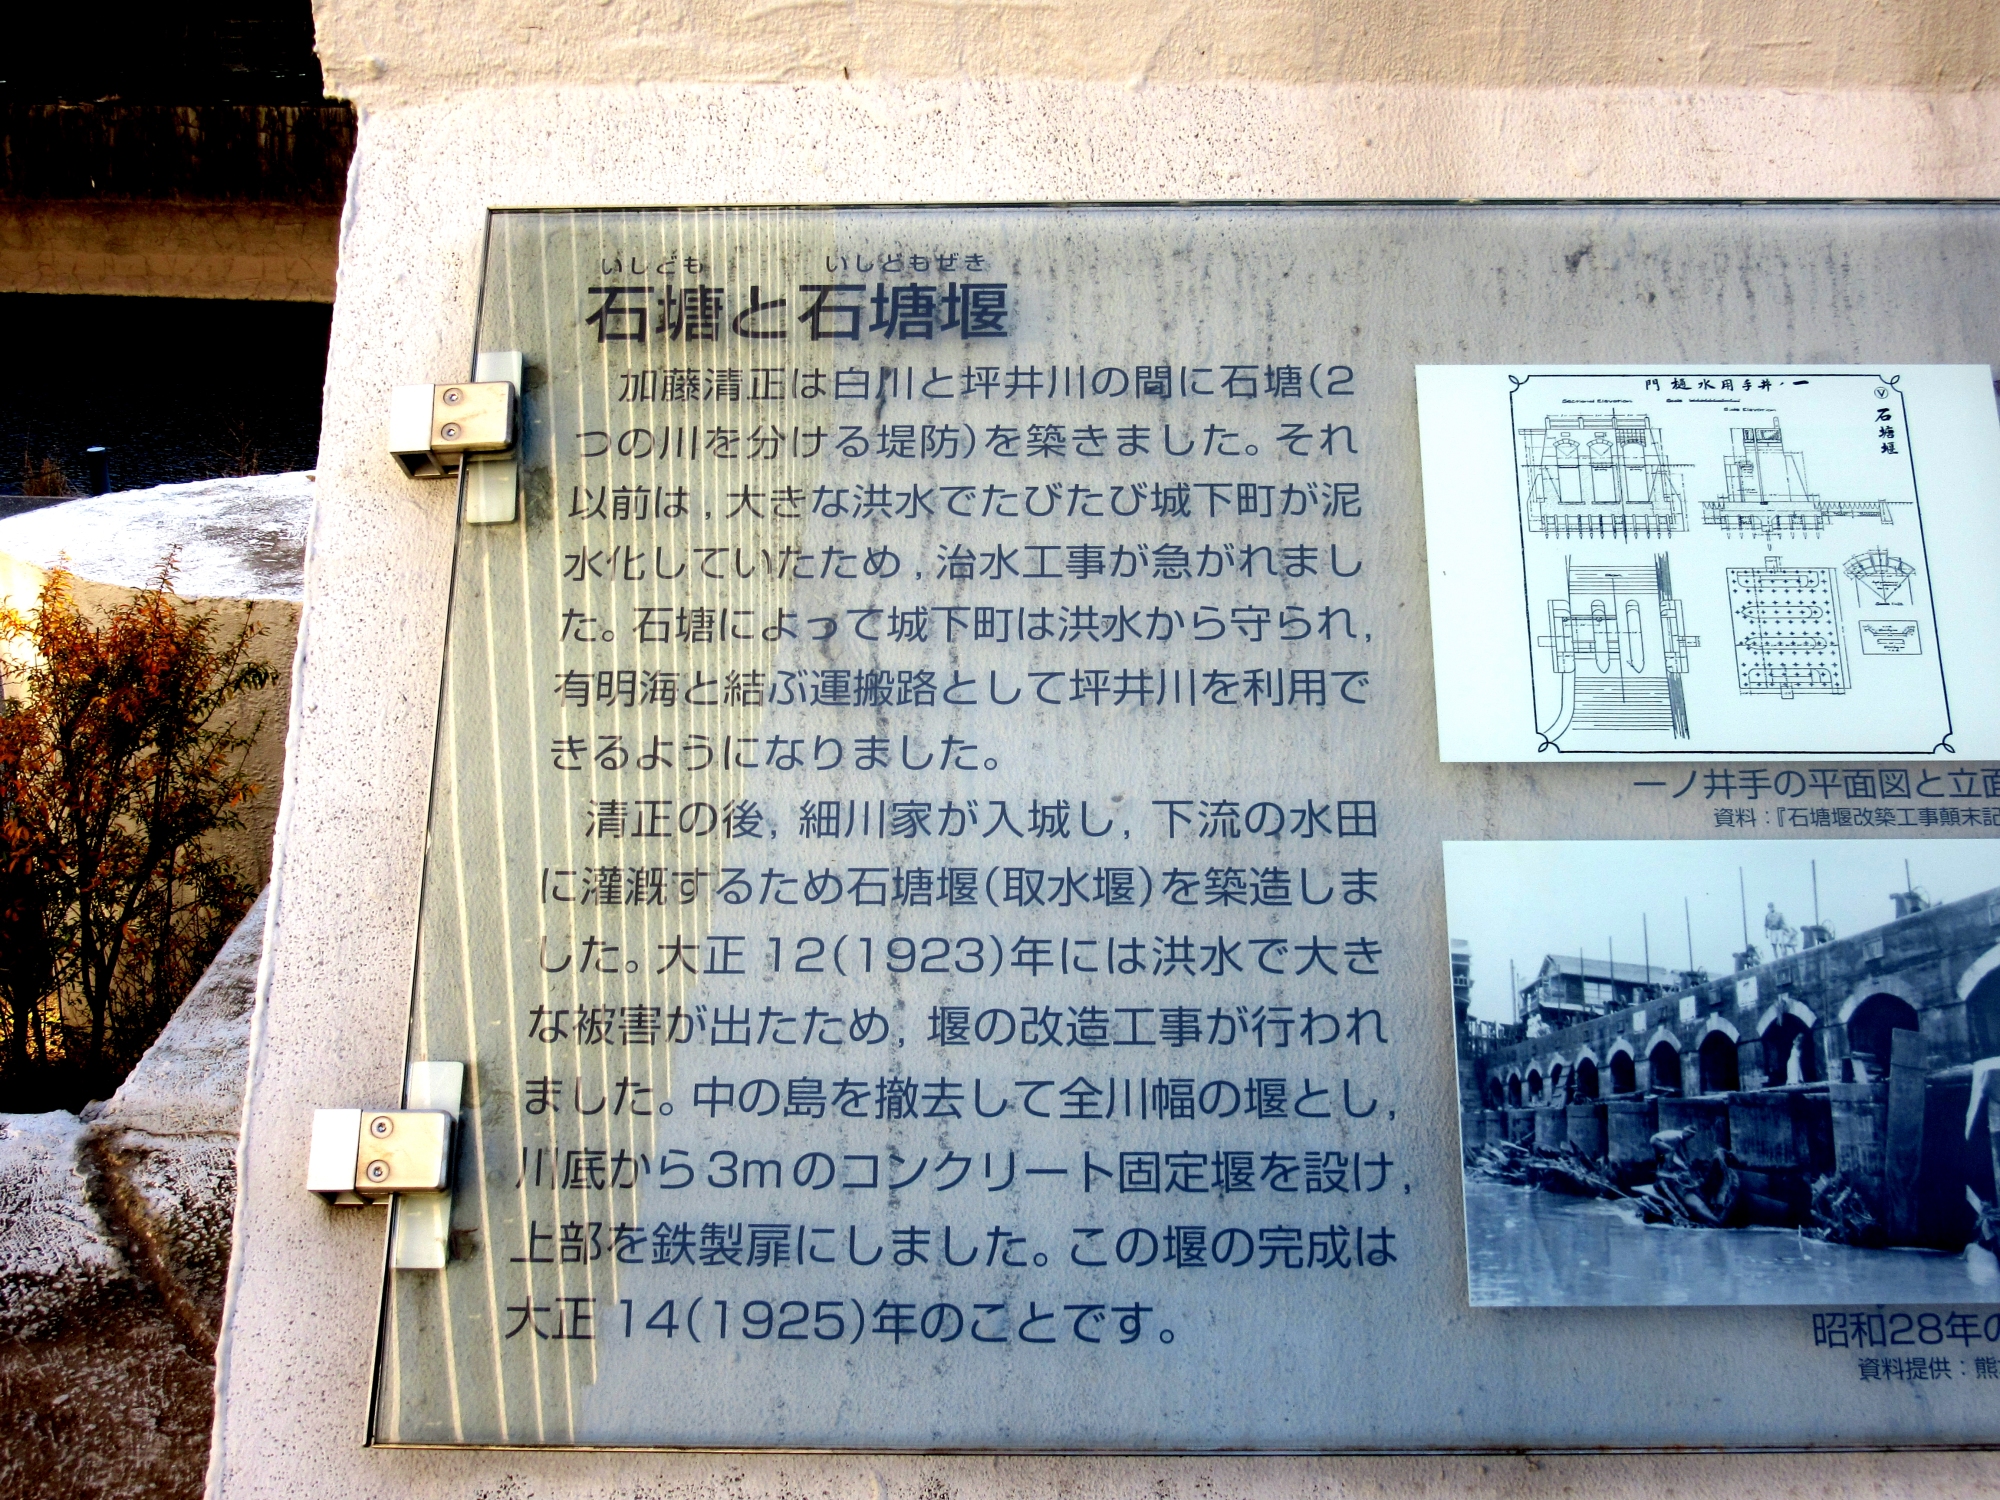 いしども いしどもぜき
石塘と石塘堰
加藤清正は白川と坪井川の間に石塘(2
つの川を分ける堤防)を築きました。それ
以前は,大きな洪水でたびたび城下町が泥
水化していたため,治水工事が急がれまし
た。石塘によって城下町は洪水から守られ,
有明海と結ぶ運搬路として坪井川を利用で
きるようになりました。
清正の後,細川家が入城し,下流の水田
に灌漑するため石塘堰(取水堰)を築造しま
した。大正12(1923)年には洪水で大き
な被害が出たため,堰の改造工事が行われ
ました。中の島を撤去して全川幅の堰とし,
川底から3mのコンクリート固定堰を設け,
上部を鉄製扉にしました。この堰の完成は
大正14(1925)年のことです。
門樋水用手井ノ一
石塘堰
Sectional Elevation
Side Elevation
一ノ井手の平面図と立面
資料:『石塘堰改築工事顛末記
昭和28年の
資料提供:熊